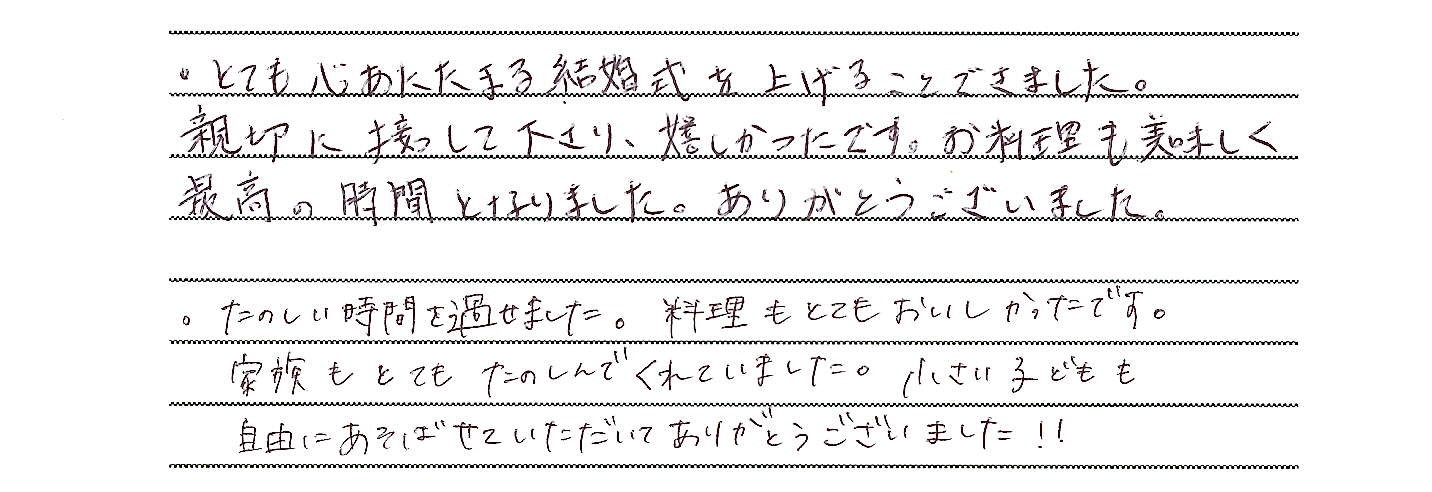 。とても心あにたまる結婚式を上げることできました。
親切に接っして下さり、嬉しかったです。お料理も美味しく
最高の時間となりました。ありがとうございました。
。たのしい時間を過せました。料理もとてもおいしかったです。
家族もとてもたのしんでくれていました。小さい子どもも
自由にあそばせていただいてありがとうございました!!